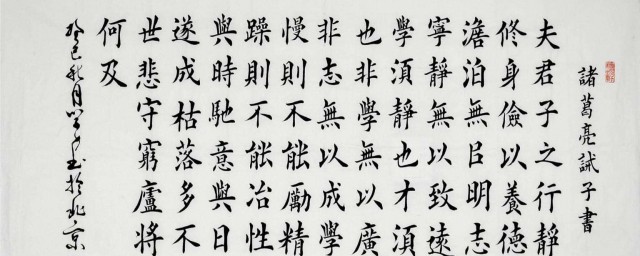 諸葛亮誡子書
夫君子之行靜
修身儉以養德
澹泊無㠯明志
寧靜無以致遠
學湏靜也才湏
也非學無以廣
非志無以成學
慢則不能勵精
躁則不能冶性
與時馳意與日
遂成枯落多不
世悲守窮廬將
何及
癸巳秋月書於北京